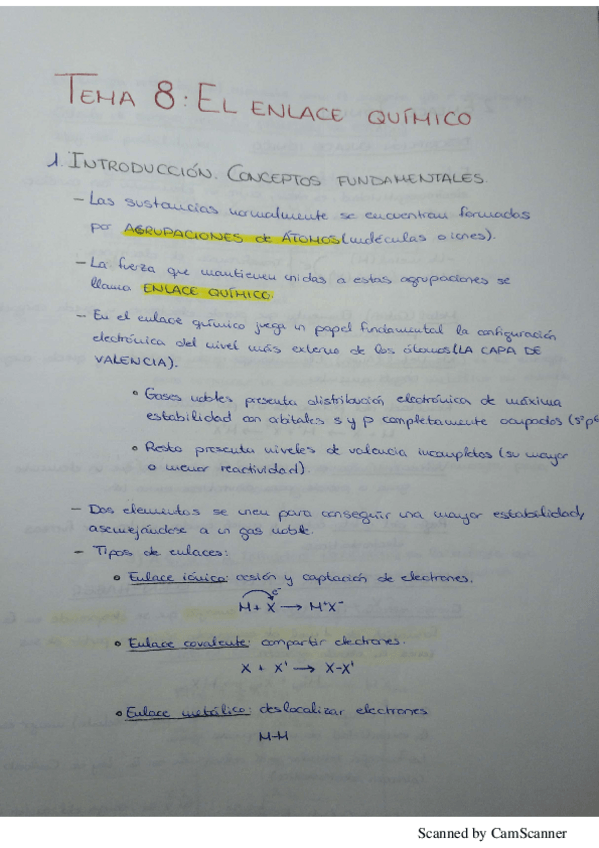 TEMA 8: EL ENLACE QUÍMICO
1. INTRODUCCIÓN. CONCEPTOS FUNDAMENTALES.
- Las sustancias normalmente se encuentran formados
por AGRUPACIONES de ÁTOMOS (moléculas o iones).
- La fuerza que mantienen unidas a estas agrupaciones se
llama ENLACE QUÍMICO.
- En el enlace químico juega un papel fundamental la configuración
electrónica del nivel más externo de los átomos (LA CAPA DE
VALENCIA).
• Gases nobles presenta distribución electrónica de máxima
estabilidad con orbitales s y p completamente ocupados (s²p⁶
• Resto presenta niveles de valencia incompletos (su mayor
o menor reactividad).
- Dos elementos se unen para conseguir una mayor estabilidad,
asemejándose a un gas noble.
- Tipos de enlaces:
• Enlace iónico: cesión y captación de electrones.
e⁻
M + X → M⁺X⁻
• Enlace covalente: compartir electrones.
X + X' → X-X'
• Enlace metálico: deslocalizar electrones
M-M
Scanned by CamScanner